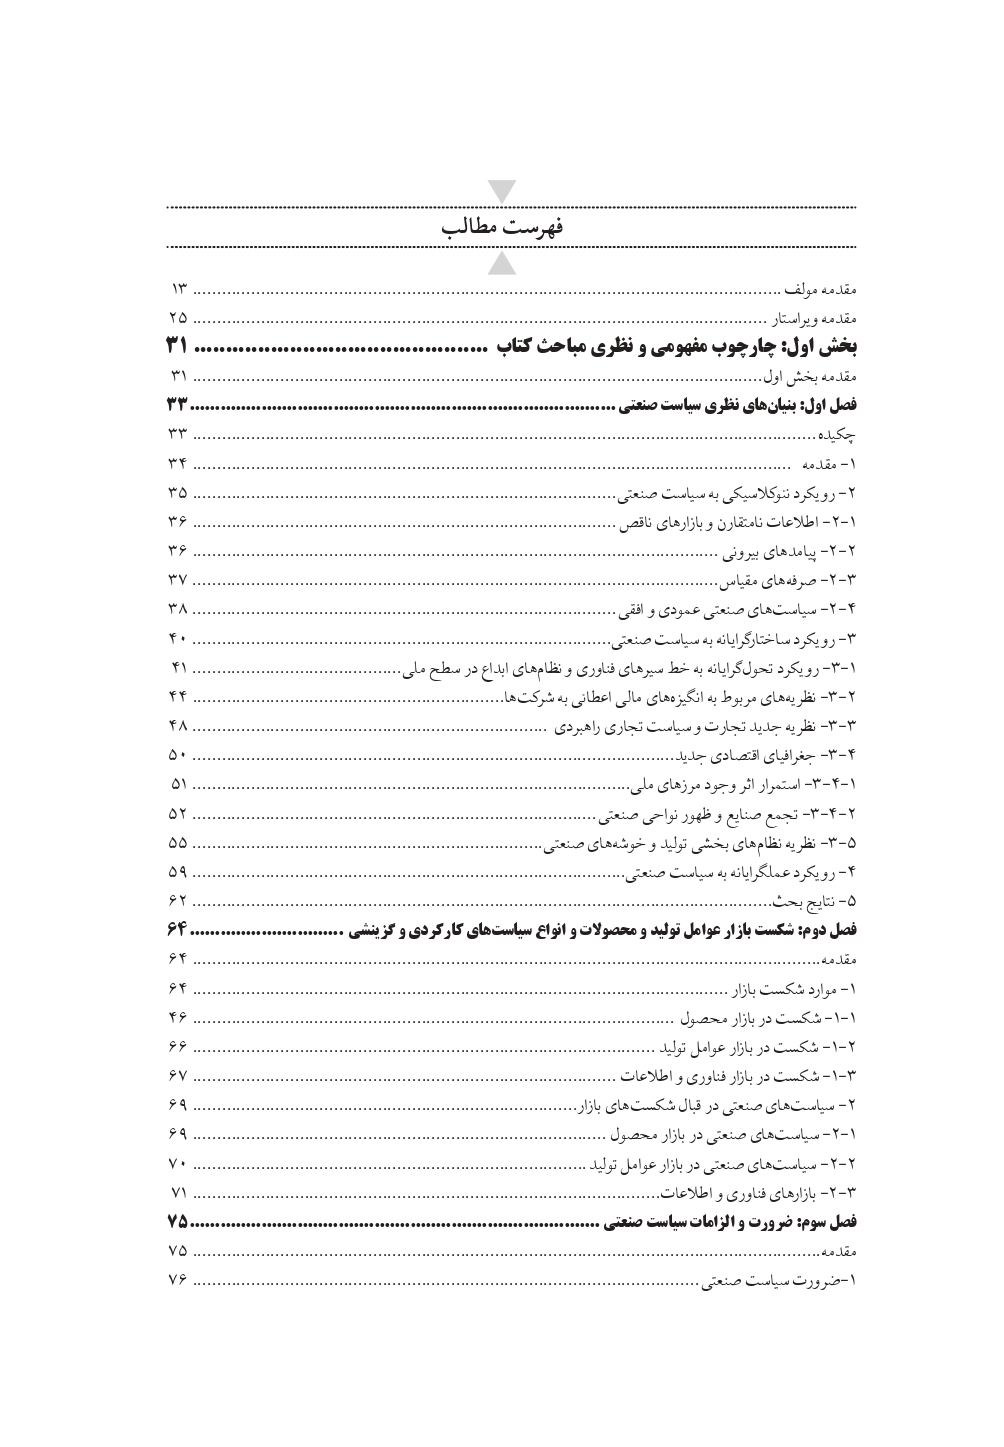 فهرست مطالب
مقدمه مولف ........................ ۱۳
مقدمه ویراستار ........................ ۲۵
بخش اول: چارچوب مفهومی و نظری مباحث کتاب ........................ ۳۱
مقدمه بخش اول ........................ ۳۱
فصل اول: بنیان‌های نظری سیاست صنعتی ........................ ۳۳
چکیده ........................ ۳۳
۱- مقدمه ........................ ۳۴
۲- رویکرد نئوکلاسیکی به سیاست صنعتی ........................ ۳۵
۲-۱- اطلاعات نامتقارن و بازارهای ناقص ........................ ۳۶
۲-۲- پیامدهای بیرونی ........................ ۳۶
۲-۳- صرفه‌های مقیاس ........................ ۳۷
۲-۴- سیاست‌های صنعتی عمودی و افقی ........................ ۳۸
۳- رویکرد ساختارگرایانه به سیاست صنعتی ........................ ۴۰
۳-۱- رویکرد تحول‌گرایانه به خط سیرهای فناوری و نظام‌های ابداع در سطح ملی ........................ ۴۱
۳-۲- نظریه‌های مربوط به انگیزه‌های مالی اعطانی به شرکت‌ها ........................ ۴۴
۳-۳- نظریه جدید تجارت و سیاست تجاری راهبردی ........................ ۴۸
۳-۴- جغرافیای اقتصادی جدید ........................ ۵۰
۳-۴-۱- استمرار اثر وجود مرزهای ملی ........................ ۵۱
۳-۴-۲- تجمع صنایع و ظهور نواحی صنعتی ........................ ۵۲
۳-۵- نظریه نظام‌های بخشی تولید و خوشه‌های صنعتی ........................ ۵۵
۴- رویکرد عملگرایانه به سیاست صنعتی ........................ ۵۹
۵- نتایج بحث ........................ ۶۲
فصل دوم: شکست بازار عوامل تولید و محصولات و انواع سیاست‌های کارکردی و گزینشی ........................ ۶۴
مقدمه ........................ ۶۴
۱- موارد شکست بازار ........................ ۶۴
۱-۱- شکست در بازار محصول ........................ ۴۶
۱-۲- شکست در بازار عوامل تولید ........................ ۶۶
۱-۳- شکست در بازار فناوری و اطلاعات ........................ ۶۷
۲- سیاست‌های صنعتی در قبال شکست‌های بازار ........................ ۶۹
۲-۱- سیاست‌های صنعتی در بازار محصول ........................ ۶۹
۲-۲- سیاست‌های صنعتی در بازار عوامل تولید ........................ ۷۰
۲-۳- بازارهای فناوری و اطلاعات ........................ ۷۱
فصل سوم: ضرورت و الزامات سیاست صنعتی ........................ ۷۵
مقدمه ........................ ۷۵
۱-ضرورت سیاست صنعتی ........................ ۷۶